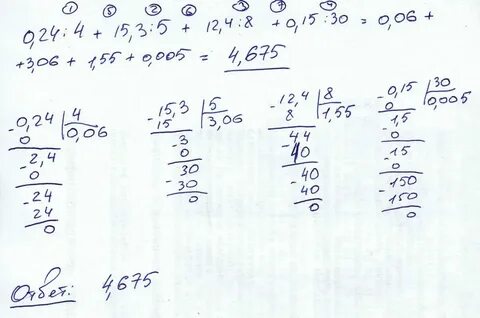 ① ⑤ ② ⑥ ③ ⑦ ④
0,24:4 + 15,3:5 + 12,4:8 + 0,15:30 = 0,06 +
+3,06 + 1,55 + 0,005 = 4,675
-0,24 | 4
0 | 0,06
-2,4
0
-24
24
0
-15,3 | 5
15 | 3,06
-3
0
-30
30
0
-12,4 | 8
8 | 1,55
-44
40
-40
40
0
-0,15 | 30
0 | 0,005
-1,5
0
-15
0
-150
150
0
Ответ: 4,675